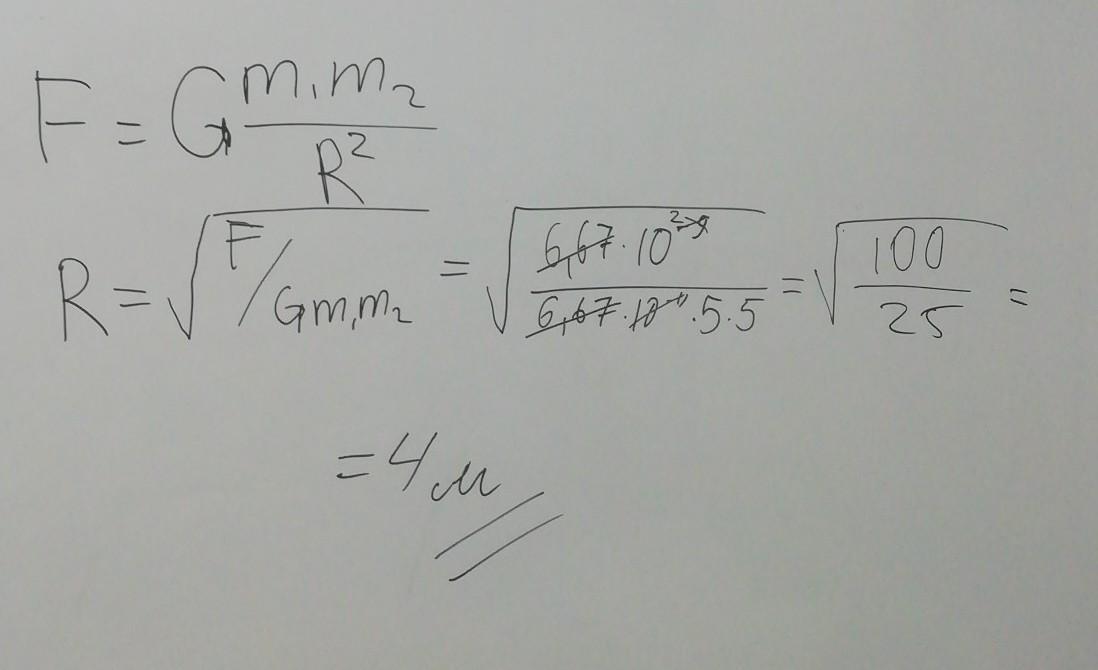 F = G m₁m₂ / R²
R = √(F / Gm₁m₂) = √(6,67·10²⁻⁹ / 6,67·10⁻¹¹·5·5) = √(100 / 25) =
= 4 м